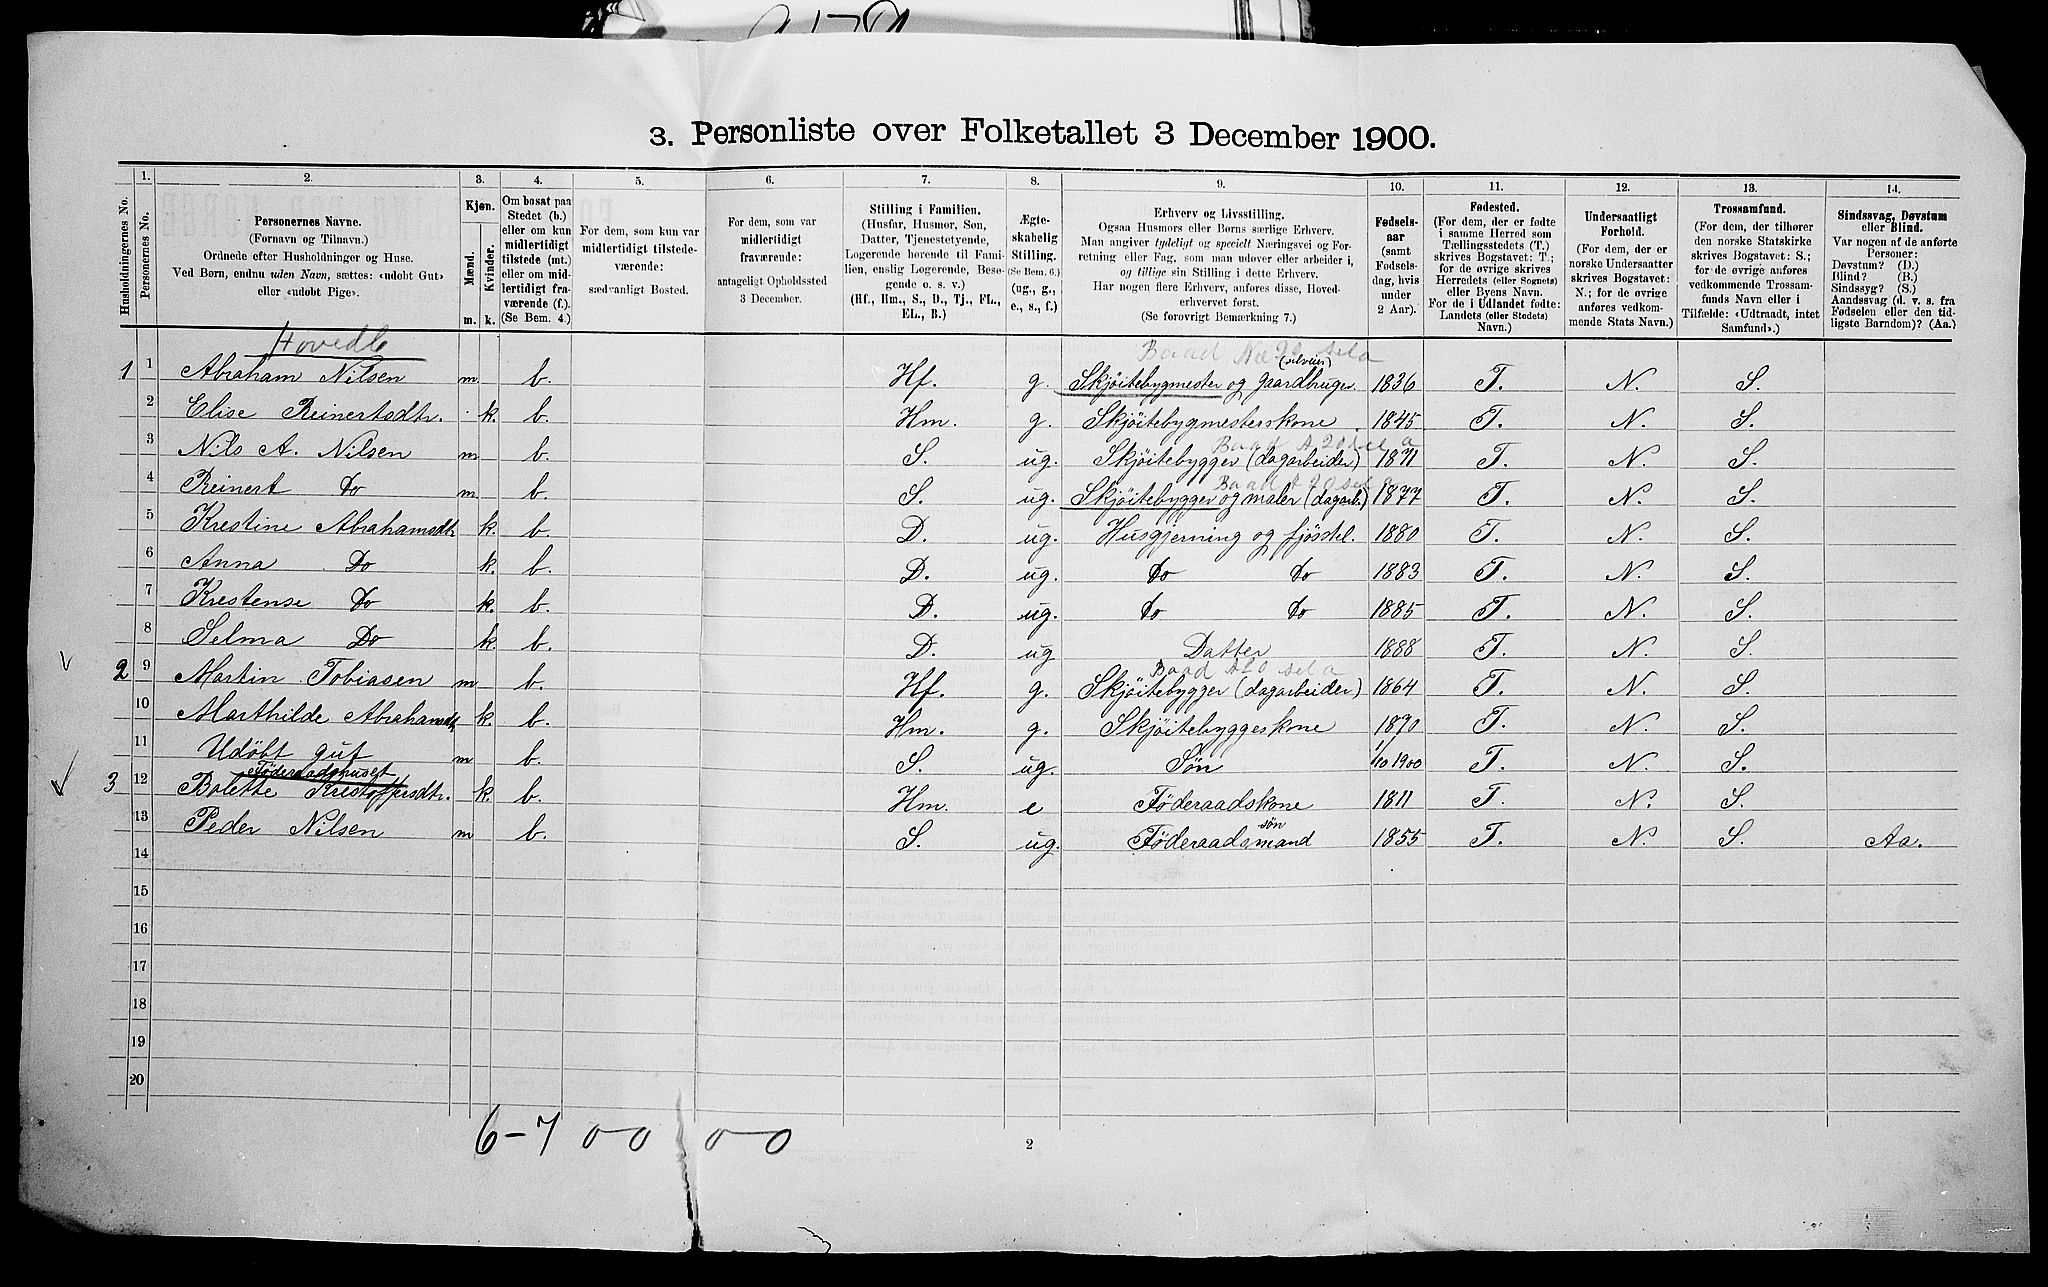 3. Personliste over Folketallet 3 December 1900.
Husholdningernes No.
1.
Personernes No.
2.
Personernes Navne.
(Fornavn og Tilnavn.)
Ordnede efter Husholdninger og Huse.
Ved Børn, endnu uden Navn, sættes: «udøbt Gut»
eller «udøbt Pige».
3.
Kjøn.
Mænd.
Kvinder.
m. k.
4.
Om bosat paa
Stedet (b.)
eller om kun
midlertidigt
tilstede (mt.)
eller om mid-
lertidigt fra-
værende (f.).
(Se Bem. 4.)
5.
For dem, som kun var
midlertidigt tilstede-
værende:
sædvanligt Bosted.
6.
For dem, som var
midlertidigt
fraværende:
antageligt Opholdssted
3 December.
7.
Stilling i Familien.
(Husfar, Husmor, Søn,
Datter, Tjenestetyende,
Logerende hørende til Fami-
lien, enslig Logerende, Besø-
gende o. s. v.)
(Hf., Hm., S., D., Tj., FL.,
EL., B.)
8.
Ægte-
skabelig
Stilling.
(Se Bem. 6.)
(ug., g.,
e., s., f.)
9.
Erhverv og Livsstilling.
Ogsaa Husmors eller Børns særlige Erhverv.
Man angiver tydeligt og specielt Næringsvei og For-
retning eller Fag, som man udøver eller arbeider i,
og tillige sin Stilling i dette Erhverv.
Har nogen flere Erhverv, anføres disse, Hoved-
erhvervet først.
(Se forøvrigt Bemærkning 7.)
10.
Fødsels-
aar
(samt
Fødsels-
dag, hvis
under
2 Aar).
11.
Fødested.
(For dem, der er fødte
i samme Herred som
Tællingsstedets (T.)
skrives Bogstavet: T.;
for de øvrige skrives
Herredets (eller Sognets)
eller Byens Navn.
For de i Udlandet fødte:
Landets (eller Stedets)
Navn.)
12.
Undersaatligt
Forhold.
(For dem, der er
norske Undersaatter
skrives Bogstavet:
N.; for de øvrige
anføres vedkom-
mende Stats Navn.)
13.
Trossamfund.
(For dem, der tilhører
den norske Statskirke
skrives Bogstavet: S.;
for de øvrige anføres
vedkommende Trossam-
funds Navn eller i
Tilfælde: «Udtraadt, intet
Samfund».)
14.
Sindssvag, Døvstum
eller Blind.
Var nogen af de anførte
Personer:
Døvstum? (D.)
Blind? (B.)
Sindssyg? (S.)
Aandssvag (d. v. s. fra
Fødselen eller den tid-
ligste Barndom)? (Aa.)
Hovedb
Baad
1 1 Abraham Nilsen m. b. Hf. g. Skjöitebygmester og gaardbruger (selveier) 1836 T. N. S.
2 Elise Reinertsdtr. k. b. Hm. g. Skjöitebygmesterskone 1845 T. N. S.
Baad
3 Nils A. Nilsen m b. S. ug. Skjöitebygger (dagarbeider) 1871 T. N. S.
Baad
4 Reinert Do m. b. S. ug. Skjöitebygger og maler (dagarb.) 1877 T. N. S.
5 Krestine Abrahamsdtr k. b. D. ug. Husgjerning og fjösstel. 1880 T. N. S.
6 Anna Do k. b. D. ug. Do Do 1883 T. N. S.
7 Krestense Do k. b. D. ug. Do Do 1885 T. N. S.
8 Selma Do k. b. D. ug Datter 1888 T. N. S.
Baad
2 9 Martin Tobiasen m b. Hf. g. Skjöitebygger (dagarbeider) 1864 T. N. S.
10 Marthilde Abrahamsdtr k. b. Hm. g. Skjöitebyggeskone 1870 T. N. S.
11 Udöbt gut m b. S. ug. Sön 1/10 1900 T. N. S.
Föderaadshuset
3 12 Bolette Krestoffersdtr. k. b. Hm. e Föderaadskone 1811 T. N. S.
13 Peder Nilsen m b. S. ug. Föderaadsmand sön 1855 T. N. S. Aa.
14
15
16
17
18
19
20
6-7 00 00
2